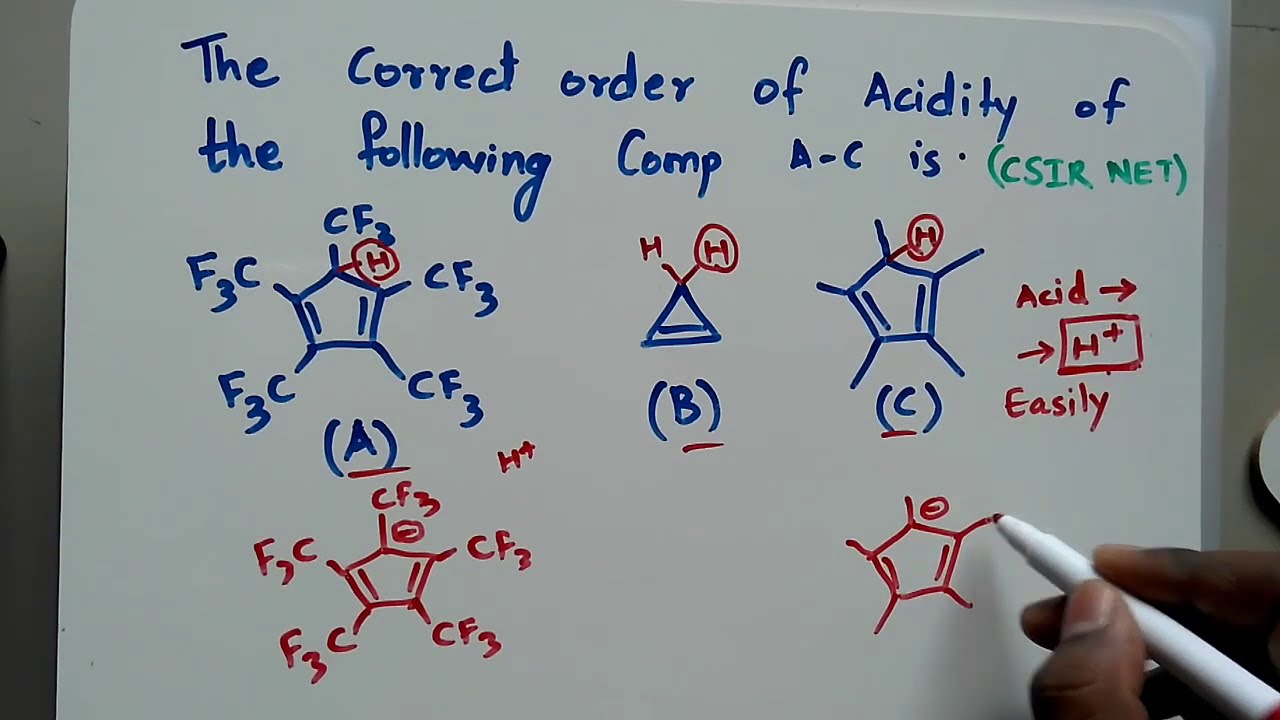 The Correct order of Acidity of
the following Comp A-C is. (CSIR NET)
CF3
H
F3C
CF3
F3C
CF3
(A)
H H
(B)
H
(C)
Acid →
→ H+
Easily
H+
CF3
⊖
F3C
CF3
F3C
CF3
⊖